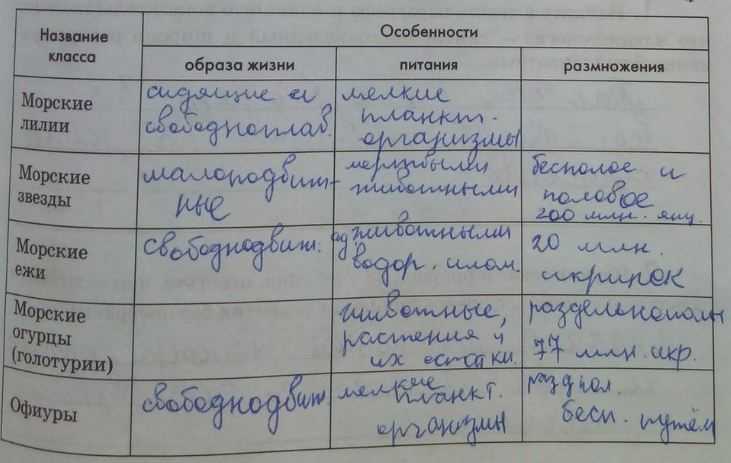 Название класса
Особенности
образа жизни
питания
размножения
Морские лилии
сидящие и
свободноплав.
мелкие
планкт.
организмы
Морские звезды
малоподвиж-
ные
мертвыми
животными
бесполое и
половое
200 млн. яиц.
Морские ежи
свободнодвиж.
животными
водор. илом.
20 млн.
икринок
Морские огурцы (голотурии)
животные,
растения и
их остатки.
раздельнополы
77 млн. икр.
Офиуры
свободнодвиж
мелкие
планкт.
организм
раздпол
бесп. путём